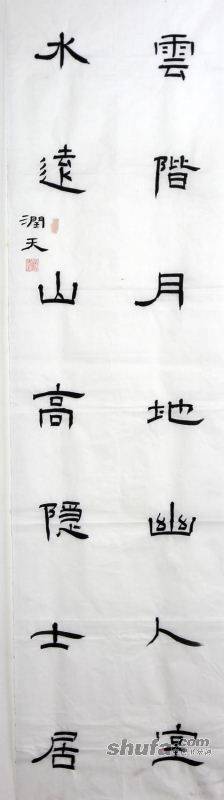 雲階月地幽人室
水遠山高隱士居
潤天
shufa.com